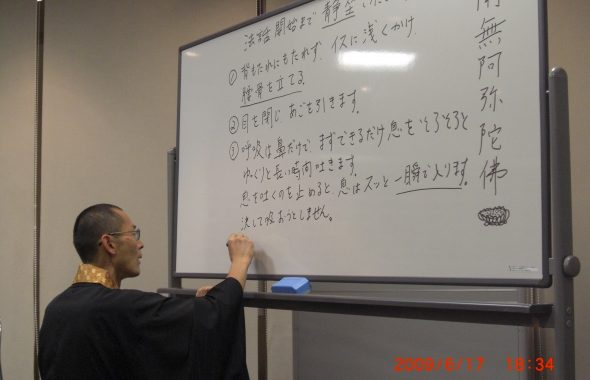 法話開始まで 静坐
① 背もたれにもたれず、イスに浅くかけ
腰骨を立てる。
② 目を閉じ、あごを引きます。
③ 呼吸は鼻だけで、まずできるだけ息をそろそろと
ゆっくりと長い時間吐きます。
息を吐くのを止めると、息はスッと一瞬で入ります。
決して吸おうとしません。
南無阿弥陀佛
2009/6/17 18:34